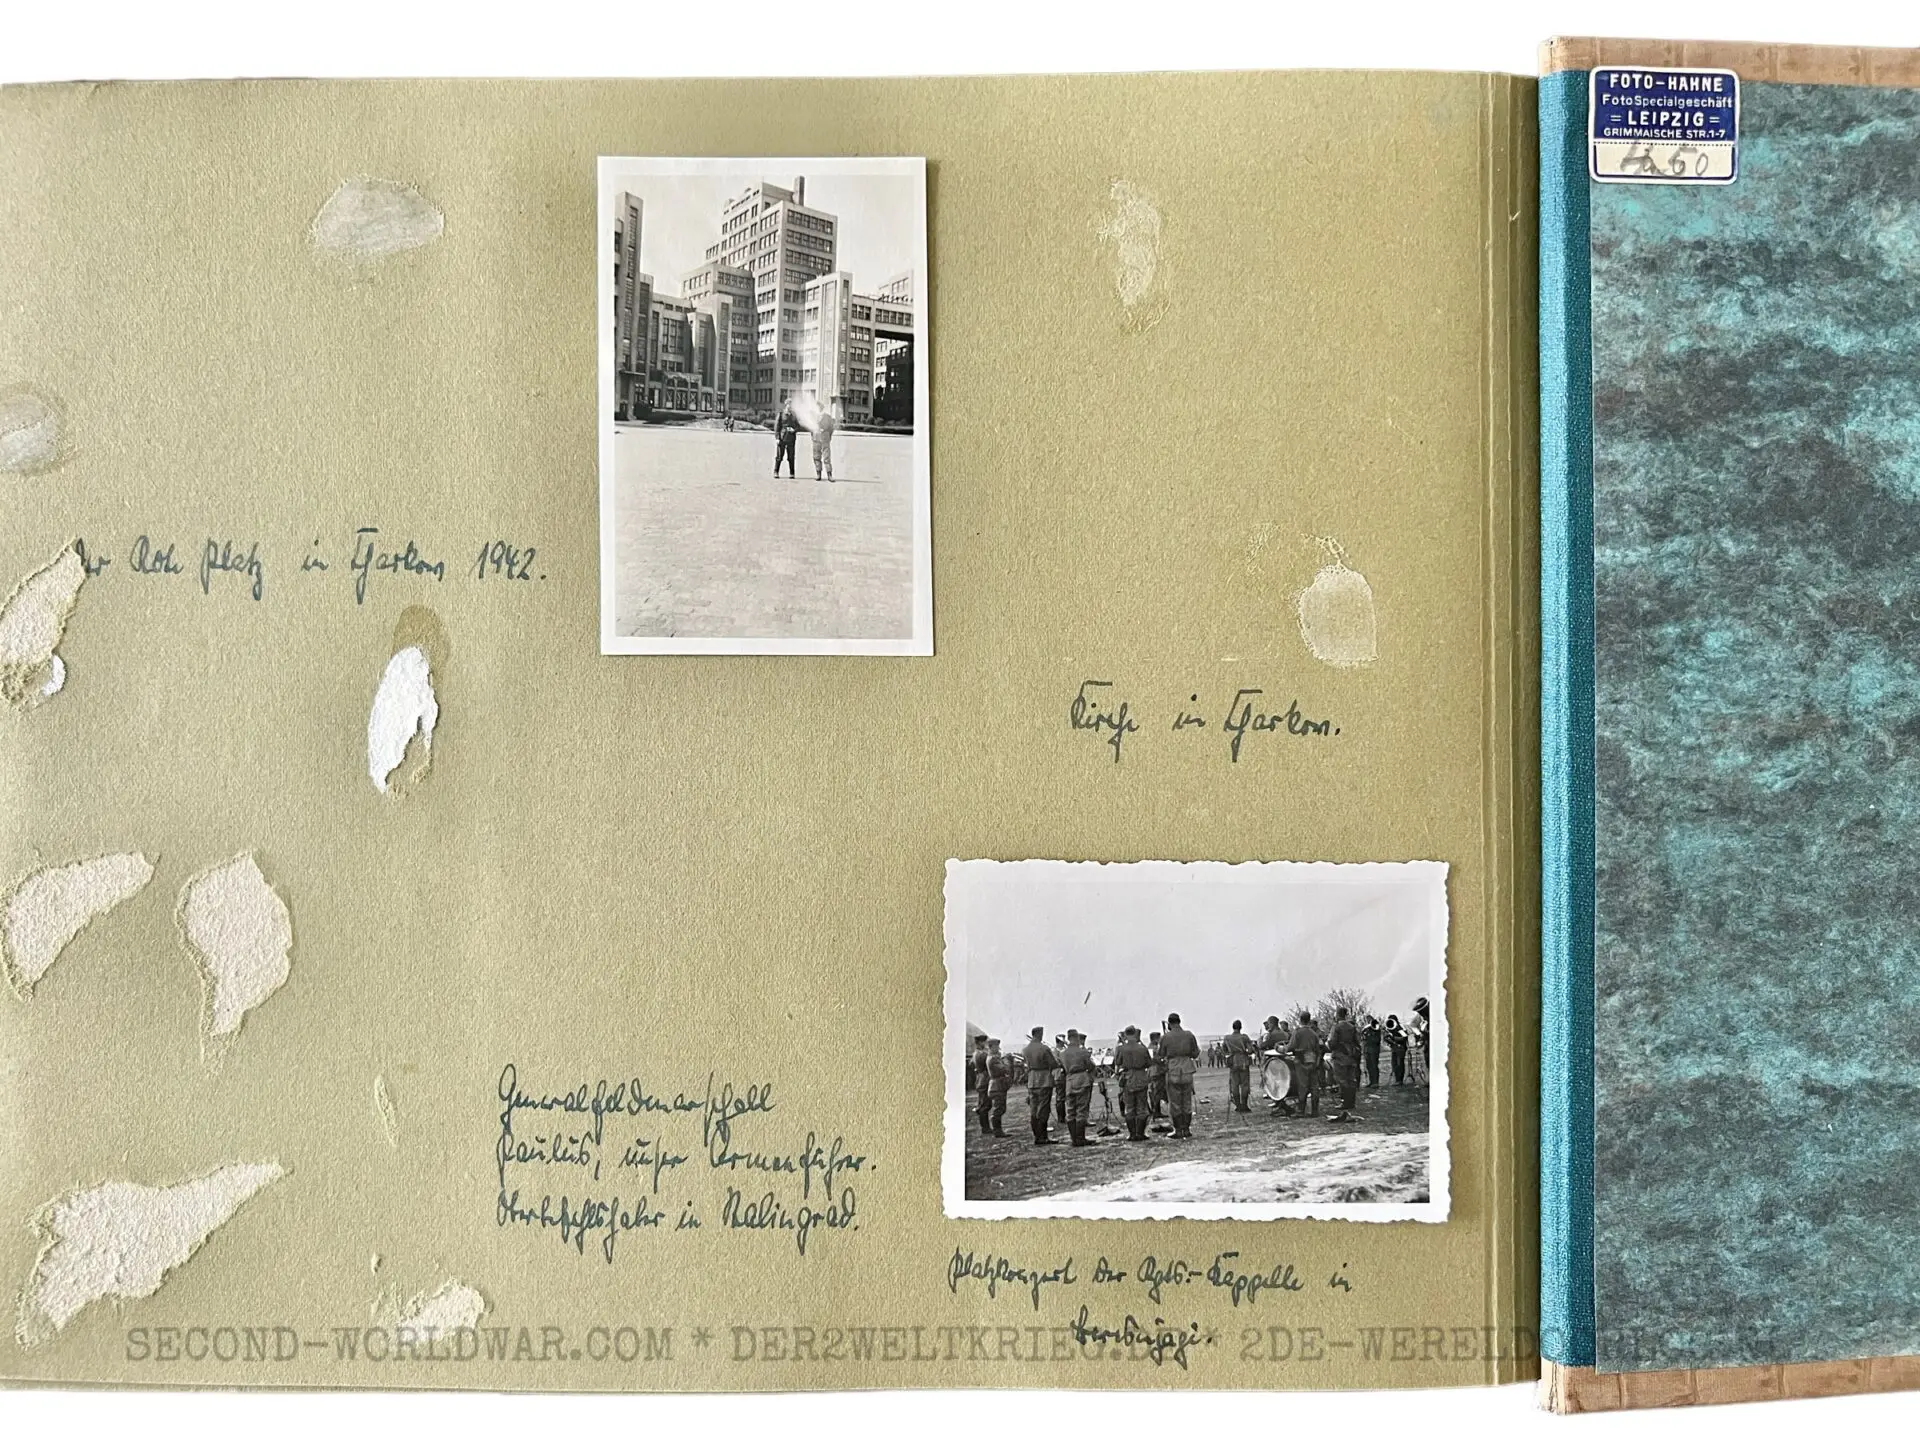 FOTO-HAHNE
FotoSpecialgeschäft
= LEIPZIG =
GRIMMAISCHE STR.1-7
50
der Rote Platz in Charkow 1942.
Kirche in Charkow.
Generalfeldmarschall
Paulus, unser Armeeführer.
Oberbefehlshaber in Stalingrad.
Platzkonzert der Rgts.-Kappelle in
SECOND-WORLDWAR.COM * DER2WELTKRIEG. * 2DE-WERELDO